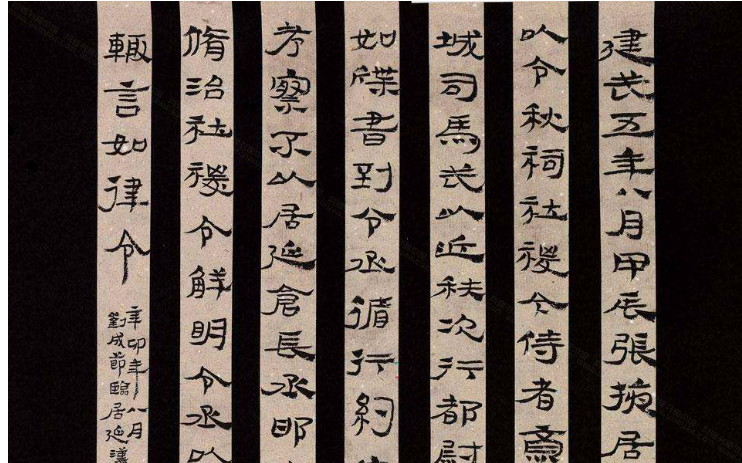 建武五年八月甲辰張掖居
以令秋祠社稷令侍者齋
城司馬武以近秩次行都尉
如牒書到令丞循行約
考察不以居延倉長丞
脩治社稷令鮮明令丞以
輒言如律令
辛卯年八月
劉成節臨居延漢